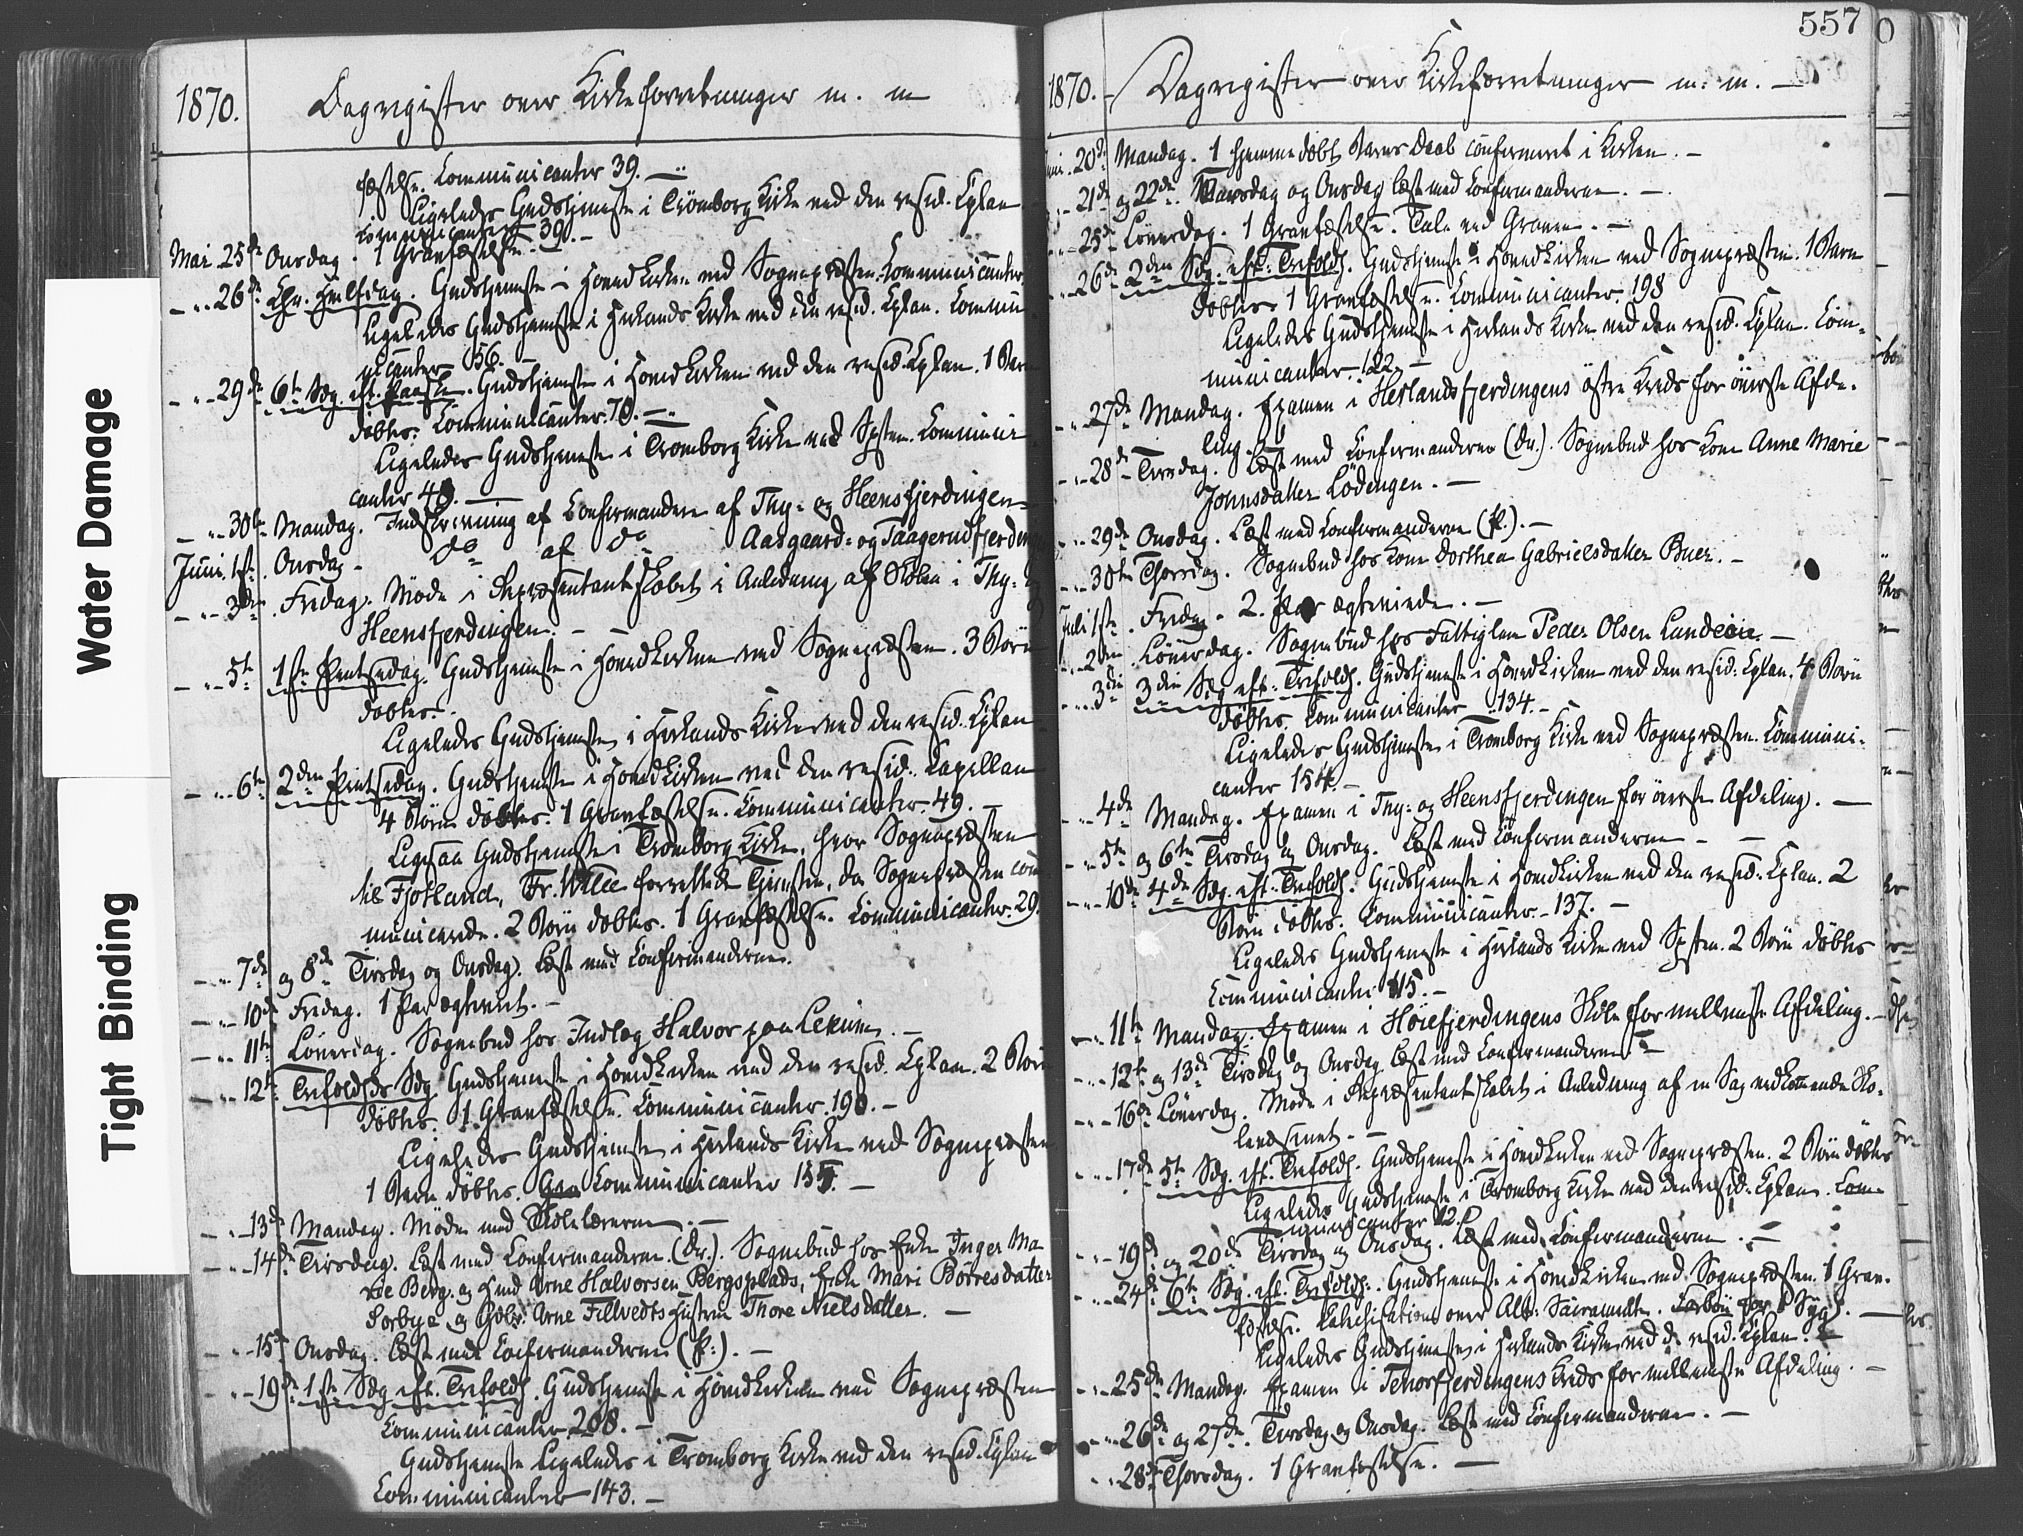 Water Damage
Tight Binding
1870. Dagregister over Kirkeforretninger m. m
fæstelse. Communicanter 39. —
Ligeledes Gudstjeneste i Trömborg Kirke ved den resid. Cplan
Communicanter 39. —
Mai 25de Onsdag. 1 Gravfæstelse. —
— " 26de Chr. Himlfdag. Gudstjeneste i Hovedkirken ved Sognepræsten. Communicanter
Ligeledes Gudstjeneste i Herlands Kirke ved den resid. Cplan. Commu
nicanter 56. —
— " 29de 6te Sdg. eft. Paaske. Gudstjeneste i Hovedkirken ved den resid. Cplan. 1 Barn
döbtes. Communicanter 70. —
Ligeledes Gudstjeneste i Trömborg Kirke ved Spsten. Communi
canter 40. —
— " 30te Mandag. Indskrivning af Confirmandere af Thy- og Heensfjerdingen
Juni 1ste Onsdag — do af do Aasgaard- og Taagerudfjerdin
— " 3die Fredag. Möde i Repræsentantskabet i Anledning af Skolen i Thy- og
Heensfjerdingen. —
— " 5te 1ste Pintsedag. Gudstjeneste i Hovedkirken ved Sognepræsten. 3 Börn
döbtes.
Ligeledes Gudstjeneste i Herlands Kirke ved den resid. Cplan
— " 6te 2den Pintsedag. Gudstjeneste i Hovedkirken ved den resid. Capellan
4 Börn döbtes. 1 Gravfæstelse. Communicanter 49. —
Ligesaa Gudstjeneste i Trömborg Kirke, hvor Sognepræsten
til Fjotland, Fr. Wilse forrettede Tjenesten, da Sognepræsten com
municerede. 2 Börn döbtes. 1 Gravfæstelse. Communicanter 29.
— " 7de og 8de Tirsdag og Onsdag. Læst med Confirmanderne.
— " 10de Fredag. 1 Par ægteviet. —
— " 11te Löverdag. Sognebud hos Indlæg Halvor paa Lekum. —
— " 12te Trefoldhds Sdg Gudstjeneste i Hovedkirken ved den resid. Cplan. 2 Börn
döbtes. 1 Gravfæstelse. Communicanter 190. —
Ligeledes Gudstjeneste i Herlands Kirke ved Sognepræsten
1 Barn döbtes. Gra Communicanter 135. —
— " 13de Mandag. Möde med Skolelærerne. —
— " 14de Tirsdag. Læst med Confirmanderne (Dr.). Sognebud hos Enke Inger Ma
rie Berg. og Hmd Arne Halvorsen Bergsplads, Enke Mari Börresdatter
Sorbye og Gdbr. Arne Fillvedts Hustru Thore Nielsdatter. —
— " 15de Onsdag. Læst med Confirmanderne (P.). —
— " 19de 1ste Sdg eft. Trefoldh. Gudstjeneste i Hovedkirken ved Sognepræsten
Communicanter 208. —
Gudstjeneste Ligeledes i Trömborg Kirke ved den resid. Cplan
Communicanter 143. —
557
1870. — Dagregister over Kirkeforretninger m. m. —
20de Mandag. 1 hjemmedöbt Barns Daab confirmeret i Kirken. —
— " 21de og 22de. Tirsdag og Onsdag læst med Confirmanderne. —
— " 25de Löverdag. 1 Gravfæstelse. Tale ved Graven. —
— " 26de 2den Sdg. eft. Trefoldh. Gudstjeneste i Hovedkirken ved Sognepræsten. 1 Barn
döbtes 1 Gravfæstelse. Communicanter. 198
Ligeledes Gudstjeneste i Herlands Kirke ved den resid. Cplan. Com-
municanter 122. —
— " 27de Mandag. Examen i Herlandsfjerdingens östre Kreds for överste Afde-
ling. —
— " 28de Tirsdag. Læst med Confirmanderne (Dr.). Sognebud hos Kone Anne Marie
Johnsdatter Lodengen. —
— " 29de Onsdag. Læst med Confirmanderne (P.). —
— " 30te Thorsdag. Sognebud hos Kone Dorthea Gabrielsdatter Buer. —
Juli 1ste Fredag. 2. Par ægteviede. —
— " 2den Löverdag. Sognebud hos Fattiglem Peder Olsen Lundeeie. —
— " 3die 3die Sdg eft. Trefoldh. Gudstjeneste i Hovedkirken ved den resid. Cplan. 4 Börn
döbtes Communicanter 134. —
Ligeledes Gudstjeneste i Trömborg Kirke ved Sognepræsten. Communi-
canter 154. —
— " 4de Mandag. Examen i Thy- og Heensfjerdingen for överste Afdeling. —
— " 5te og 6te Tirsdag og Onsdag. Læst med Confirmanderne —
— " 10de 4de Sdg. eft. Trefoldh. Gudstjeneste i Hovedkirken ved den resid. Cplan. 2
Börn döbtes. Communicanter 137. —
Ligeledes Gudstjeneste i Herlands Kirke ved Spsten. 2 Börn döbtes
Communicanter 115. —
— " 11te Mandag. Examen i Hoiefjerdingens Skole for mellemste Afdeling. —
— " 12te og 13de Tirsdag og Onsdag læst med Confirmanderne. —
— " 16de Löverdag. Möde i Repræsentantskabet i Anledning af en Sag vedkommende Sko-
levæsenet. —
— " 17de 5te Sdg. eft. Trefoldh. Gudstjeneste i Hovedkirken ved Sognepræsten. 2 Börn döbtes
Ligeledes Gudstjeneste i Trömborg Kirke ved den resid. Cplan. Com-
municanter 120
— " 19de og 20de Tirsdag og Onsdag. Læst med Confirmanderne. —
— " 24de 6te Sdg. eft. Trefoldh. Gudstjeneste i Hovedkirken ved Sognepræsten. 1 Grav-
fæstelse. Catechisation over Alt. Sacramentet. Forbön for 1 Syg. —
Ligeledes Gudstjeneste i Herlands Kirke ved d. resid. Cplan. —
— " 25de Mandag. Examen i Tenorfjerdingens Kreds for mellemste Afdeling. —
— " 26de og 27de. Tirsdag og Onsdag. Læst med Confirmanderne. —
— " 28de Thorsdag. 1 Gravfæstelse. —